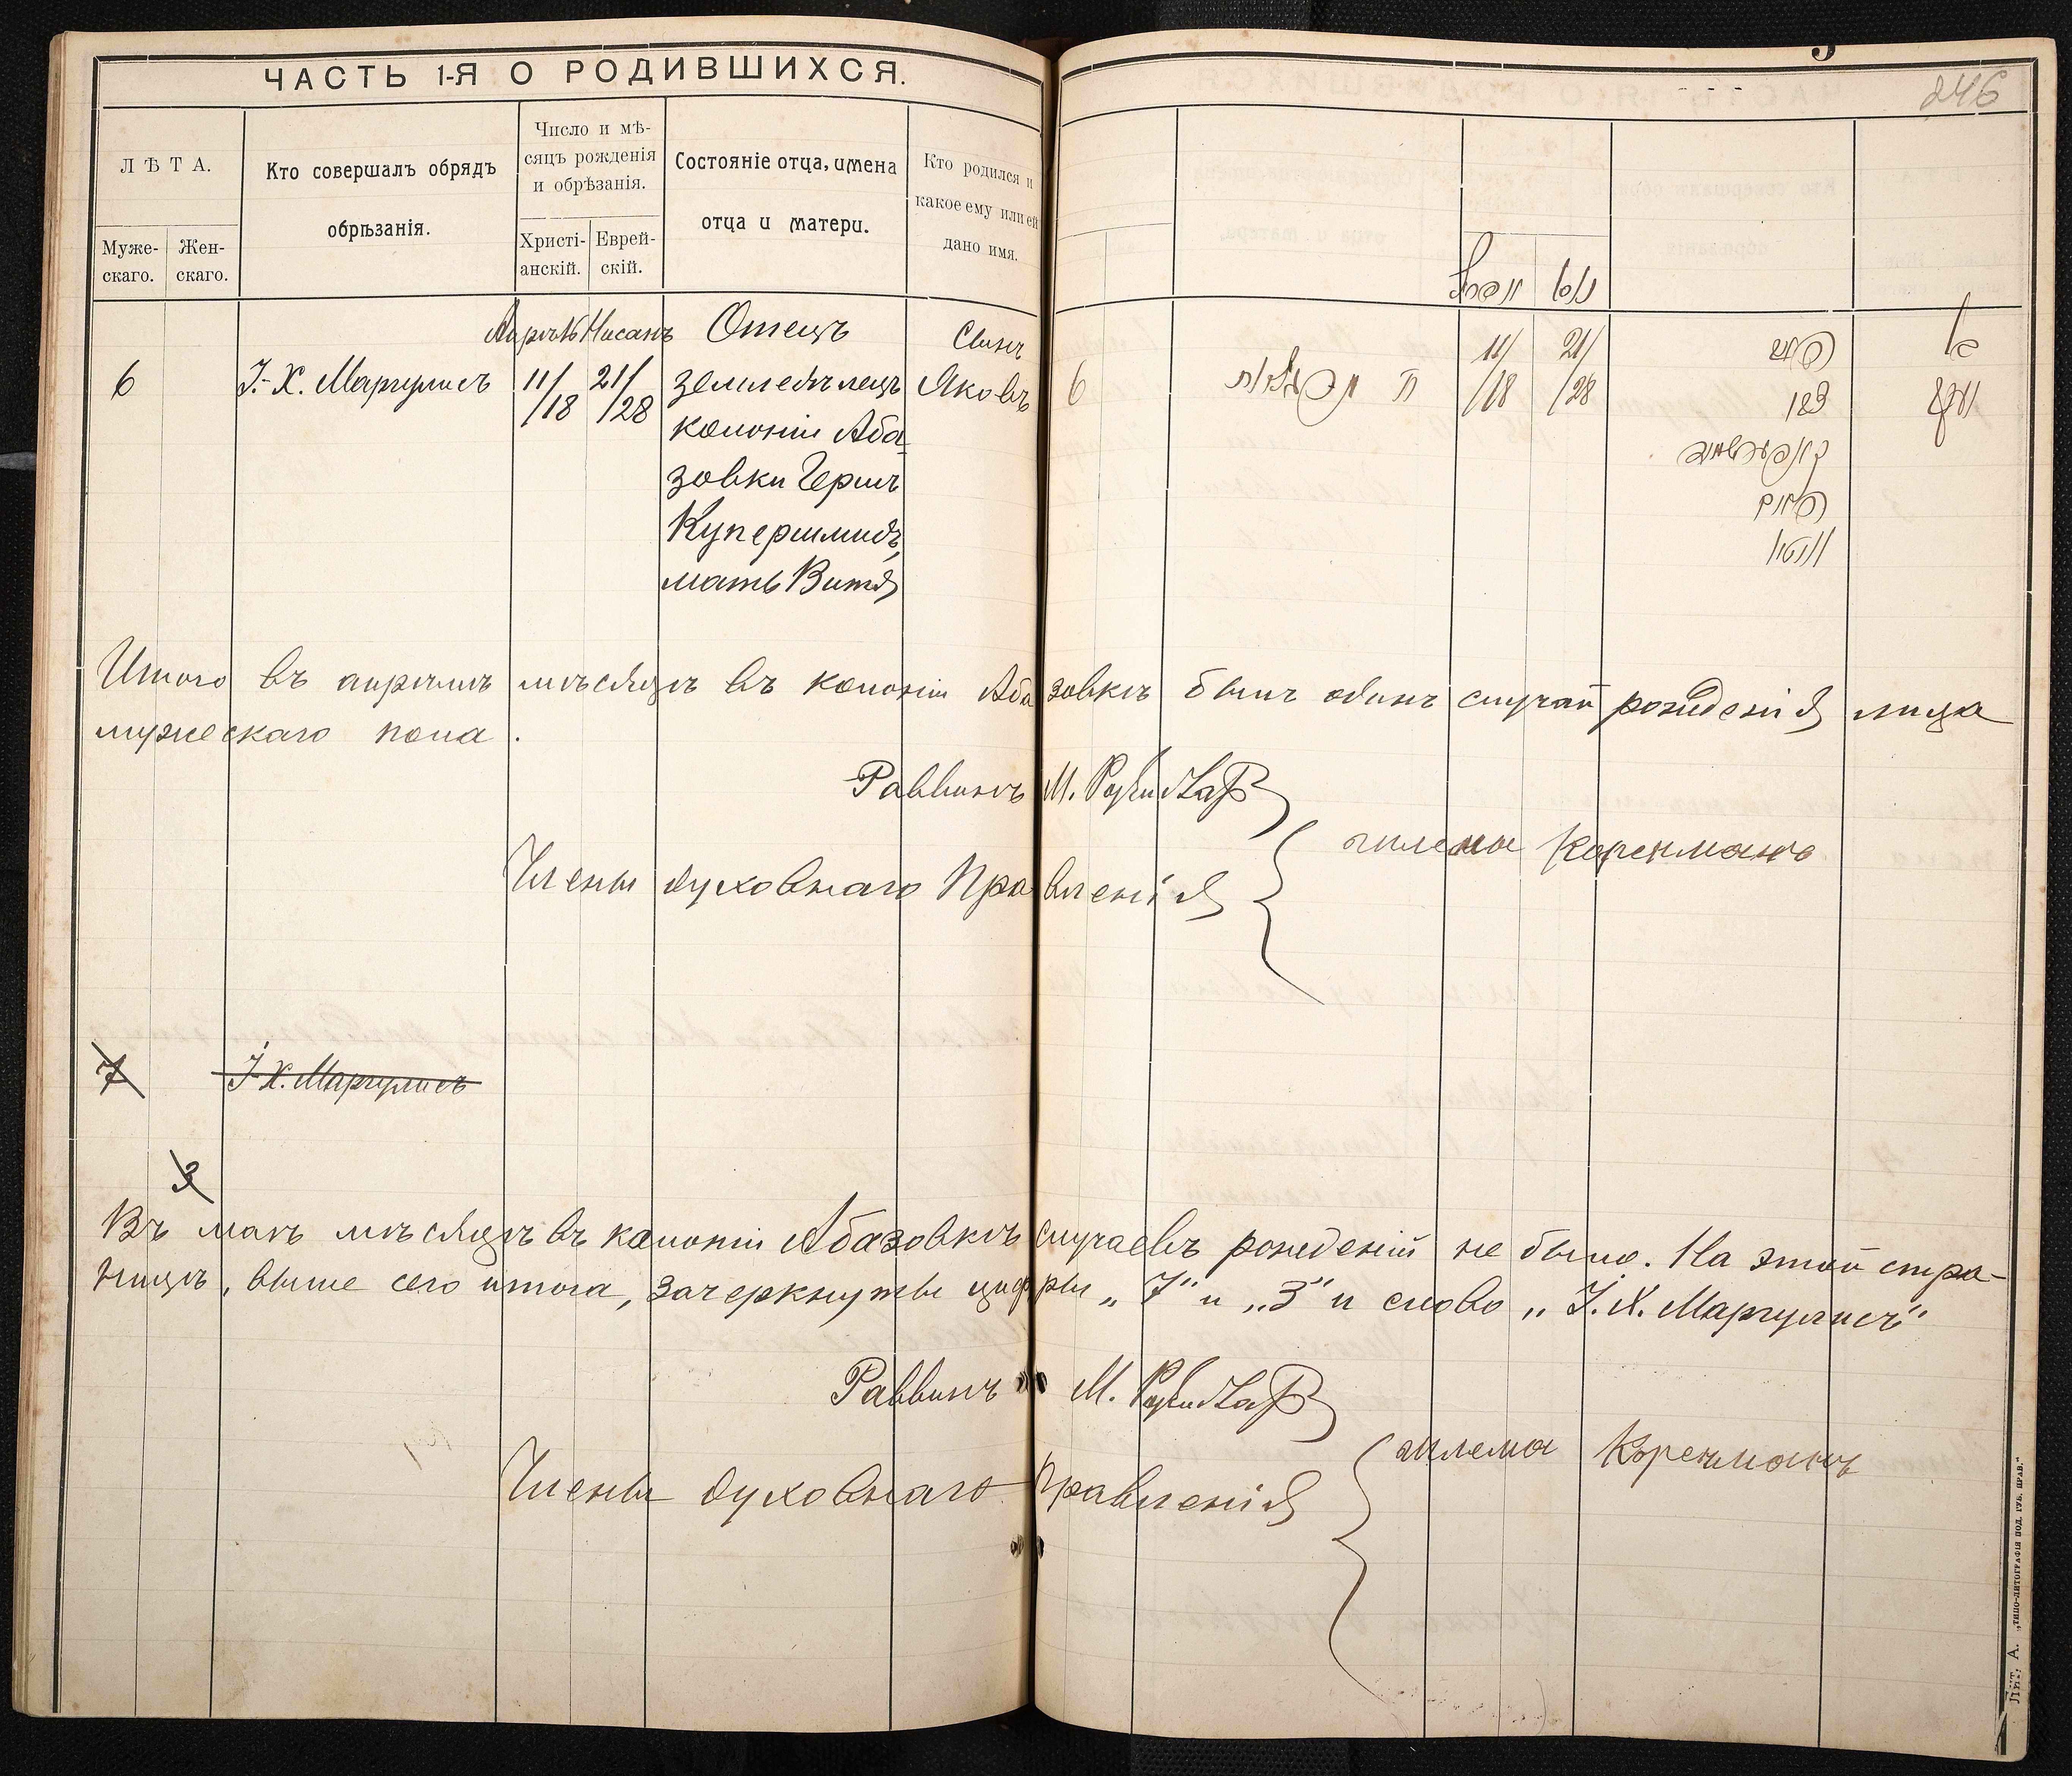 ЧАСТЬ 1-Я О РОДИВШИХСЯ.
246
ЛѢТА.
Муже-
скаго.
Жен-
скаго.
Кто совершалъ обрядъ
обрѣзанія.
Число и мѣ-
сяцъ рожденія
и обрѣзанія.
Христі-
анскій.
Еврей-
скій.
Состояніе отца, имена
отца и матери.
Кто родился и
какое ему или ей
дано имя.
6
І.-Х. Маргулисъ
Апрѣль
11/
/18
Нисанъ
21/
/28
Отецъ
земледѣлецъ
колоніи Аба-
зовки Гершъ
Купершмидъ,
мать Витя
Сынъ
Яковъ
6
11/
/18
21/
/28
Итого въ апрѣлѣ мѣсяцѣ въ колоніи Абазовкѣ былъ одинъ случай рожденія лица
мужескаго пола.
Раввинъ М.
Члены духовнаго Правленія
шлема Коренманъ
7
І-Х. Маргулисъ
3
Въ маѣ мѣсяцѣ въ колоніи Абазовкѣ случаевъ рожденій не было. На этой стра-
ницѣ, выше сего итога, зачеркнуты цифры „7“ и „3“ и слово „І. Х. Маргулисъ“
Раввинъ М.
Члены духовнаго Правленія
шлема Коренманъ
Лит. А. „ТИПО-ЛИТОГРАФІЯ ПОД. ГУБ. ПРАВ.“